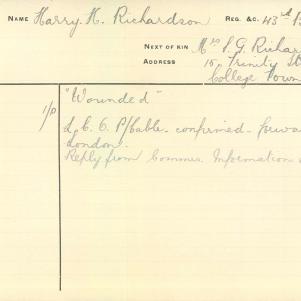 NAME Harry. H. Richardson REG. &C. 43rd
NEXT OF KIN Mrs S. G. Richar
ADDRESS 15, Trinity St
College Town
"Wounded"
1/p L. E. O. P/Cable. confirmed - forwa
London.
Reply from Commrs. Information